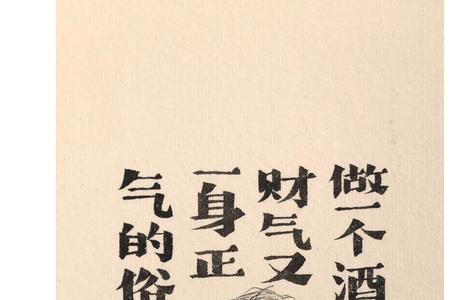 做一个酒
财气又
一身正
气的俗